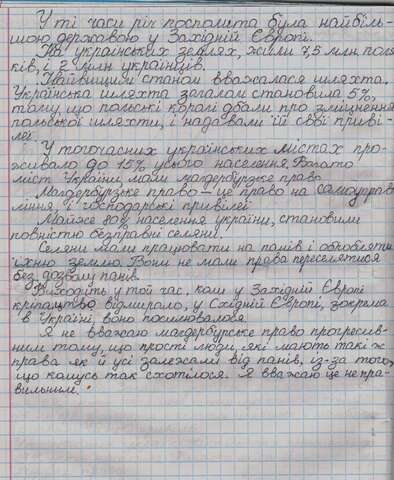 У ті часи річ посполита була найбіль-
шою державою у Західній Європі.
На українських землях, жили 7,5 млн поля
ків, і 2 млн українців.
Найвищим станом вважалася шляхта.
Українська шляхта загалом становила 5%,
тому, що польські королі дбали про зміцнення
польської шляхти, і надавали їй свої приві-
леї.
У тогочасних українських містах про-
живало до 15% усього населення. Багато
міст України, мали магдербурзке право
Магдербурзке право - це право на самоуправ
ління, і господарські привілеї
Майже 80% населення україни, становили
повністю безправні селяни.
Селяни мали працювати на панів і обробляти
їхню землю. Вони не мали права переселятися
без дозволу панів.
Виходить у той час, коли у Західній Європі
кріпацтво відмирало, у Східній Європі, зокрема
в Україні, воно посилювалося
Я не вважаю магдербурське право прогресив-
ним тому, що прості люди, які мають такі ж
права як й усі залежали від панів, із-за того,
що комусь так схотілося. Я вважаю це не пра-
вильним.